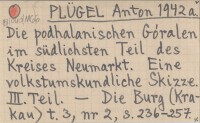 PLÜGEL Anton 1942a
Die podhalanischen Góralen
im südlichsten Teil des
Kreises Neumarkt. Eine
volkstumskundliche Skizze.
III. Teil. — Die Burg (Kra-
kau) t. 3, nr 2, s. 236-257.